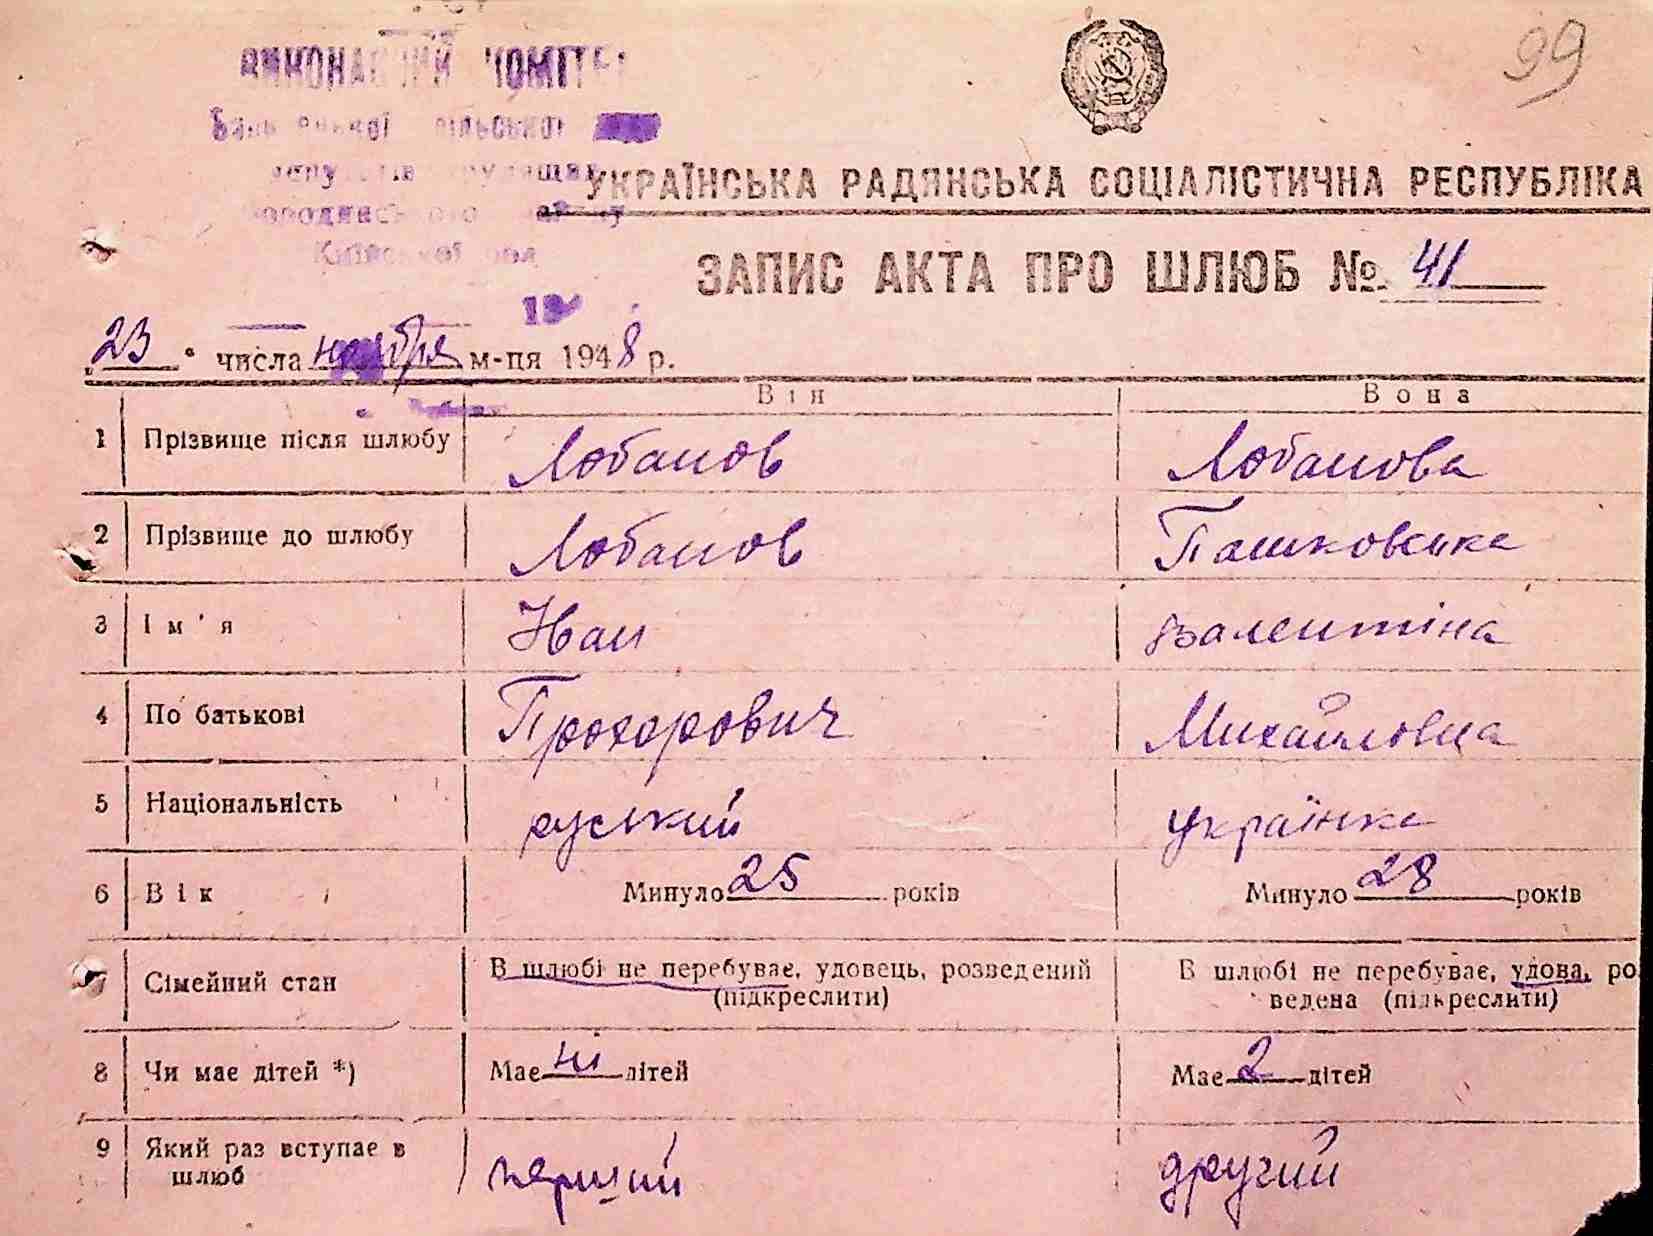 99
ВИКОНАВЧИЙ КОМІТЕТ
сільської
депутатів трудящих
Бородянського району
Київської обл
УКРАЇНСЬКА РАДЯНСЬКА СОЦІАЛІСТИЧНА РЕСПУБЛІКА
ЗАПИС АКТА ПРО ШЛЮБ № 41
„23" числа ноября м-ця 1948 р.
Він Вона
1 Прізвище після шлюбу Лобанов Лобанова
2 Прізвище до шлюбу Лобанов Пашковська
3 Ім'я Иван Валентіна
4 По батькові Прохорович Михайловна
5 Національність руський українка
6 Вік Минуло 25 років Минуло 28 років
7 Сімейний стан В шлюбі не перебуває, удовець, розведений В шлюбі не перебуває, удова, роз
(підкреслити) ведена (підкреслити)
8 Чи має дітей *) Має ні дітей Має 2 дітей
9 Який раз вступає в перший другий
шлюб